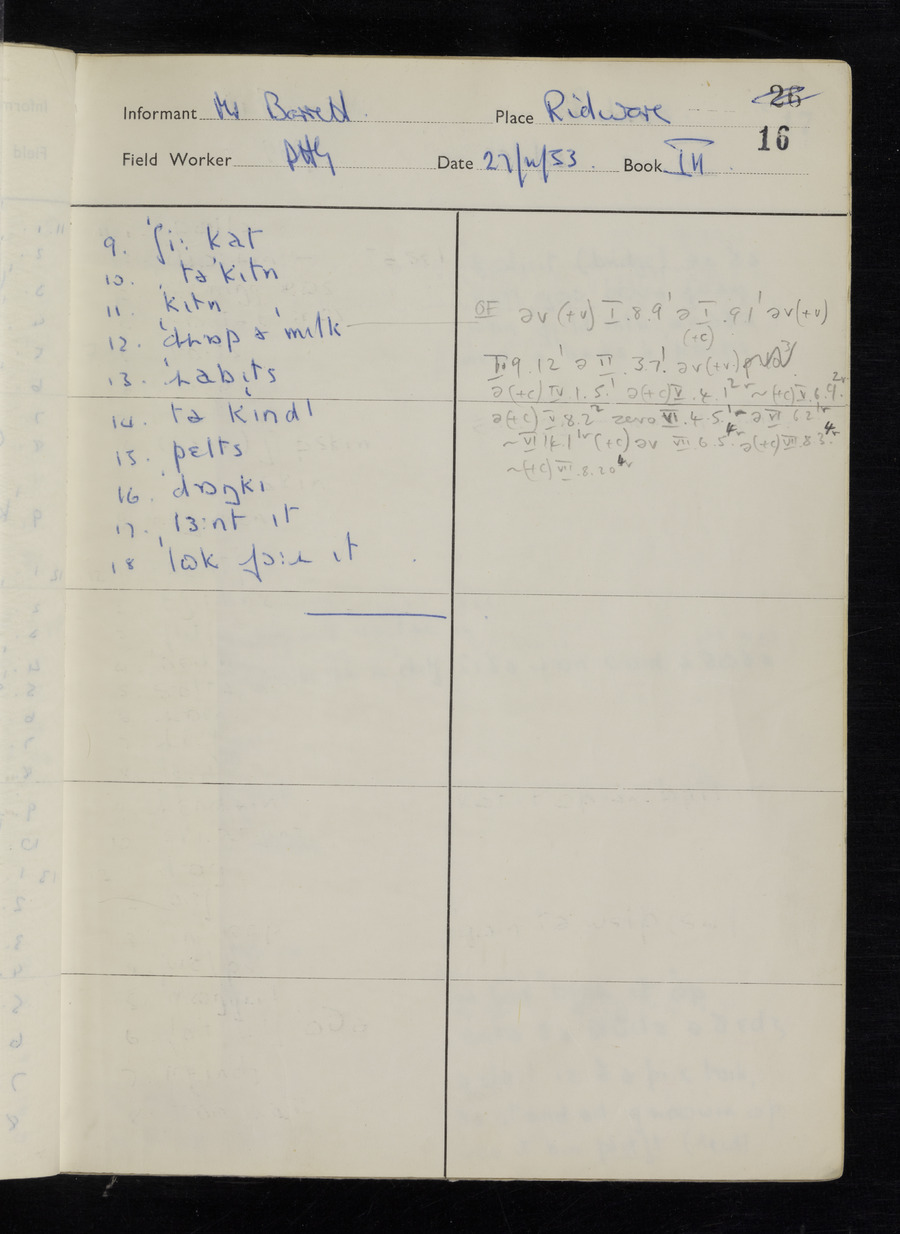 Informant Mr Barrett Place Ridware 26
16
Field Worker PHG Date 27/11/53. Book III
9. ˈʃiː kat
10. təˈkɪtn
11. ˈkɪtn
12. ˈdɹɒp ə ˈmɪlk
13. ˈɹabɪts
14. tə ˈkɪndl
15. pelts
16. ˈdɒŋkɪ
17. ˈlɜːnt ɪt
18 ˈlʊk fɔːɹ ɪt.
OF əv (+v) I.8.9' ə I.9.1' əv(+v)
(+c)
II.9.12' ə II.3.7' əv(+v)
ə(+c) IV.1.5' ə(+c) V.4.1 ~(+c) V.6.9
ə(+c) V.8.2² zero VI.4.5' ə VI 6.2
~ VI 14.1 (+c) əv VII 6.5 ə(+c) VII.8.3
~(+c) VII.8.20